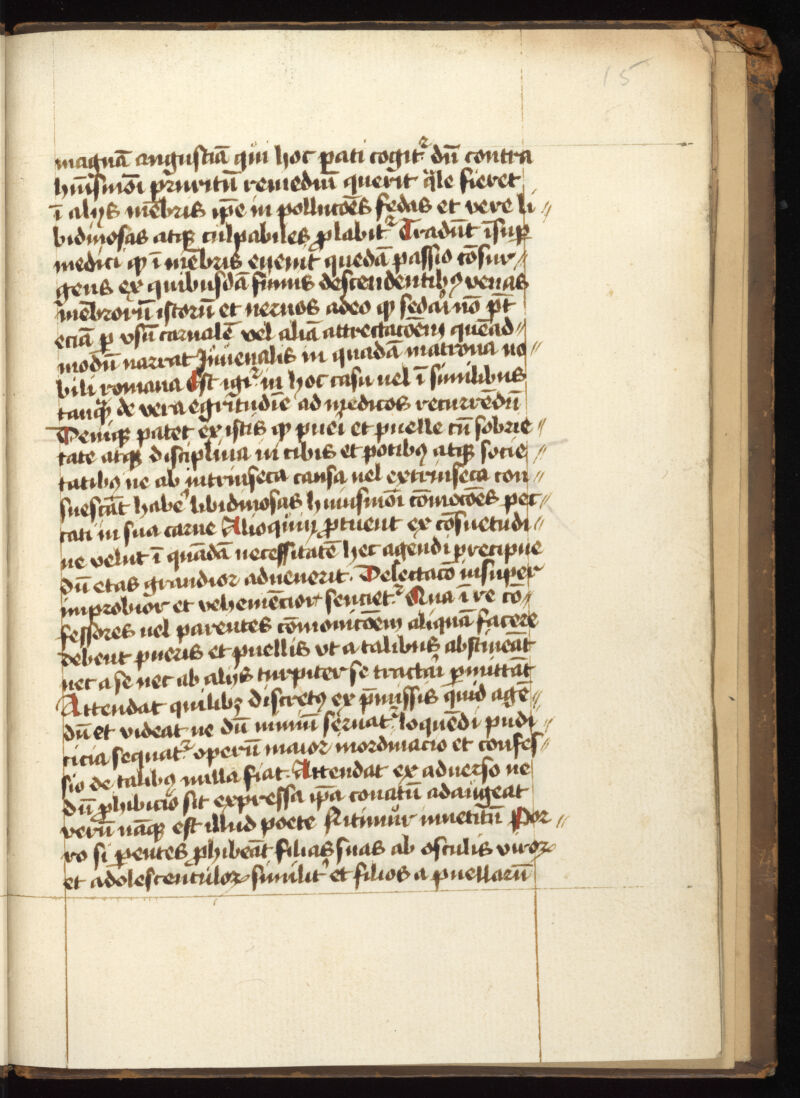 15
magnā angustiā qui hoc pati cogit᷑ dū contra
hui᷑smōi pruritū remediū querit q̄le fieret
ī alijs mēbris ip̄e in pollutōēs fedas et vere li〃
bidinosas atqꝫ culpabiles ꝓlabit᷑ Tradūt īsup̄
medici ꝙ ī mēbris euenit quedā passio cōsur〃
gens ex quibusdā fumis descendentibꝰ venas
mēbrorū istorū et neruos adeo ꝙ sedai nō pt̄
eciā ꝑ vsū carnalē vel aliā attrectatōem quēad〃
modū narrat Juuenalis in quadā matrona no〃
bili romana Est igr̄ in hoc casu uel ī similibus
tanqꝫ de vera egritudīe ad medicos recurrēdū
Deniqꝫ patet ex istis ꝙ puei et puelle cū sobrie〃
tate atqꝫ disciplina in cibis et potibꝰ atqꝫ socie〃
tatibꝰ ne ab intrinseca causa uel extrinseca con〃
suescāt habe᷑ libidinosas huiusmōi cōmocōēs pec〃
cati in sua carne Alioquin ꝓtuent ex cōsuetudi〃
ne velut ī quādā necessitatē hec agendi precipue
dū etas grandior aduenerit. Delectacō insuper
improbior et vehemēcior senciet᷑ Qua ī re cō〃
fessores uel parentes cōmonitōem aliquā facere
debent pueris et puellis vt a talibus abstineāt
nec a se nec ab alijs turpiter se tractai ꝑmittāt
Attendat quilibꝫ discretꝰ ex p̄missis quid agē〃
dū et videat ne dū nimiū seruat᷑ loquēdi pudi〃
ticia sequat᷑ operū maior mordinacio et confes〃
sio de talibꝰ nulla fiat. Attendat ex aduerso ne
dū ꝓhibicio sit expressa ip̄a conatū adaugeat
verū nāqꝫ est illud poete Nitimur in uetitū Por〃
ro si ꝑentes ꝓhibeāt filias suas ab osculis viroꝝ
et adolescentuloꝝ similit᷑ et filios a puellarū